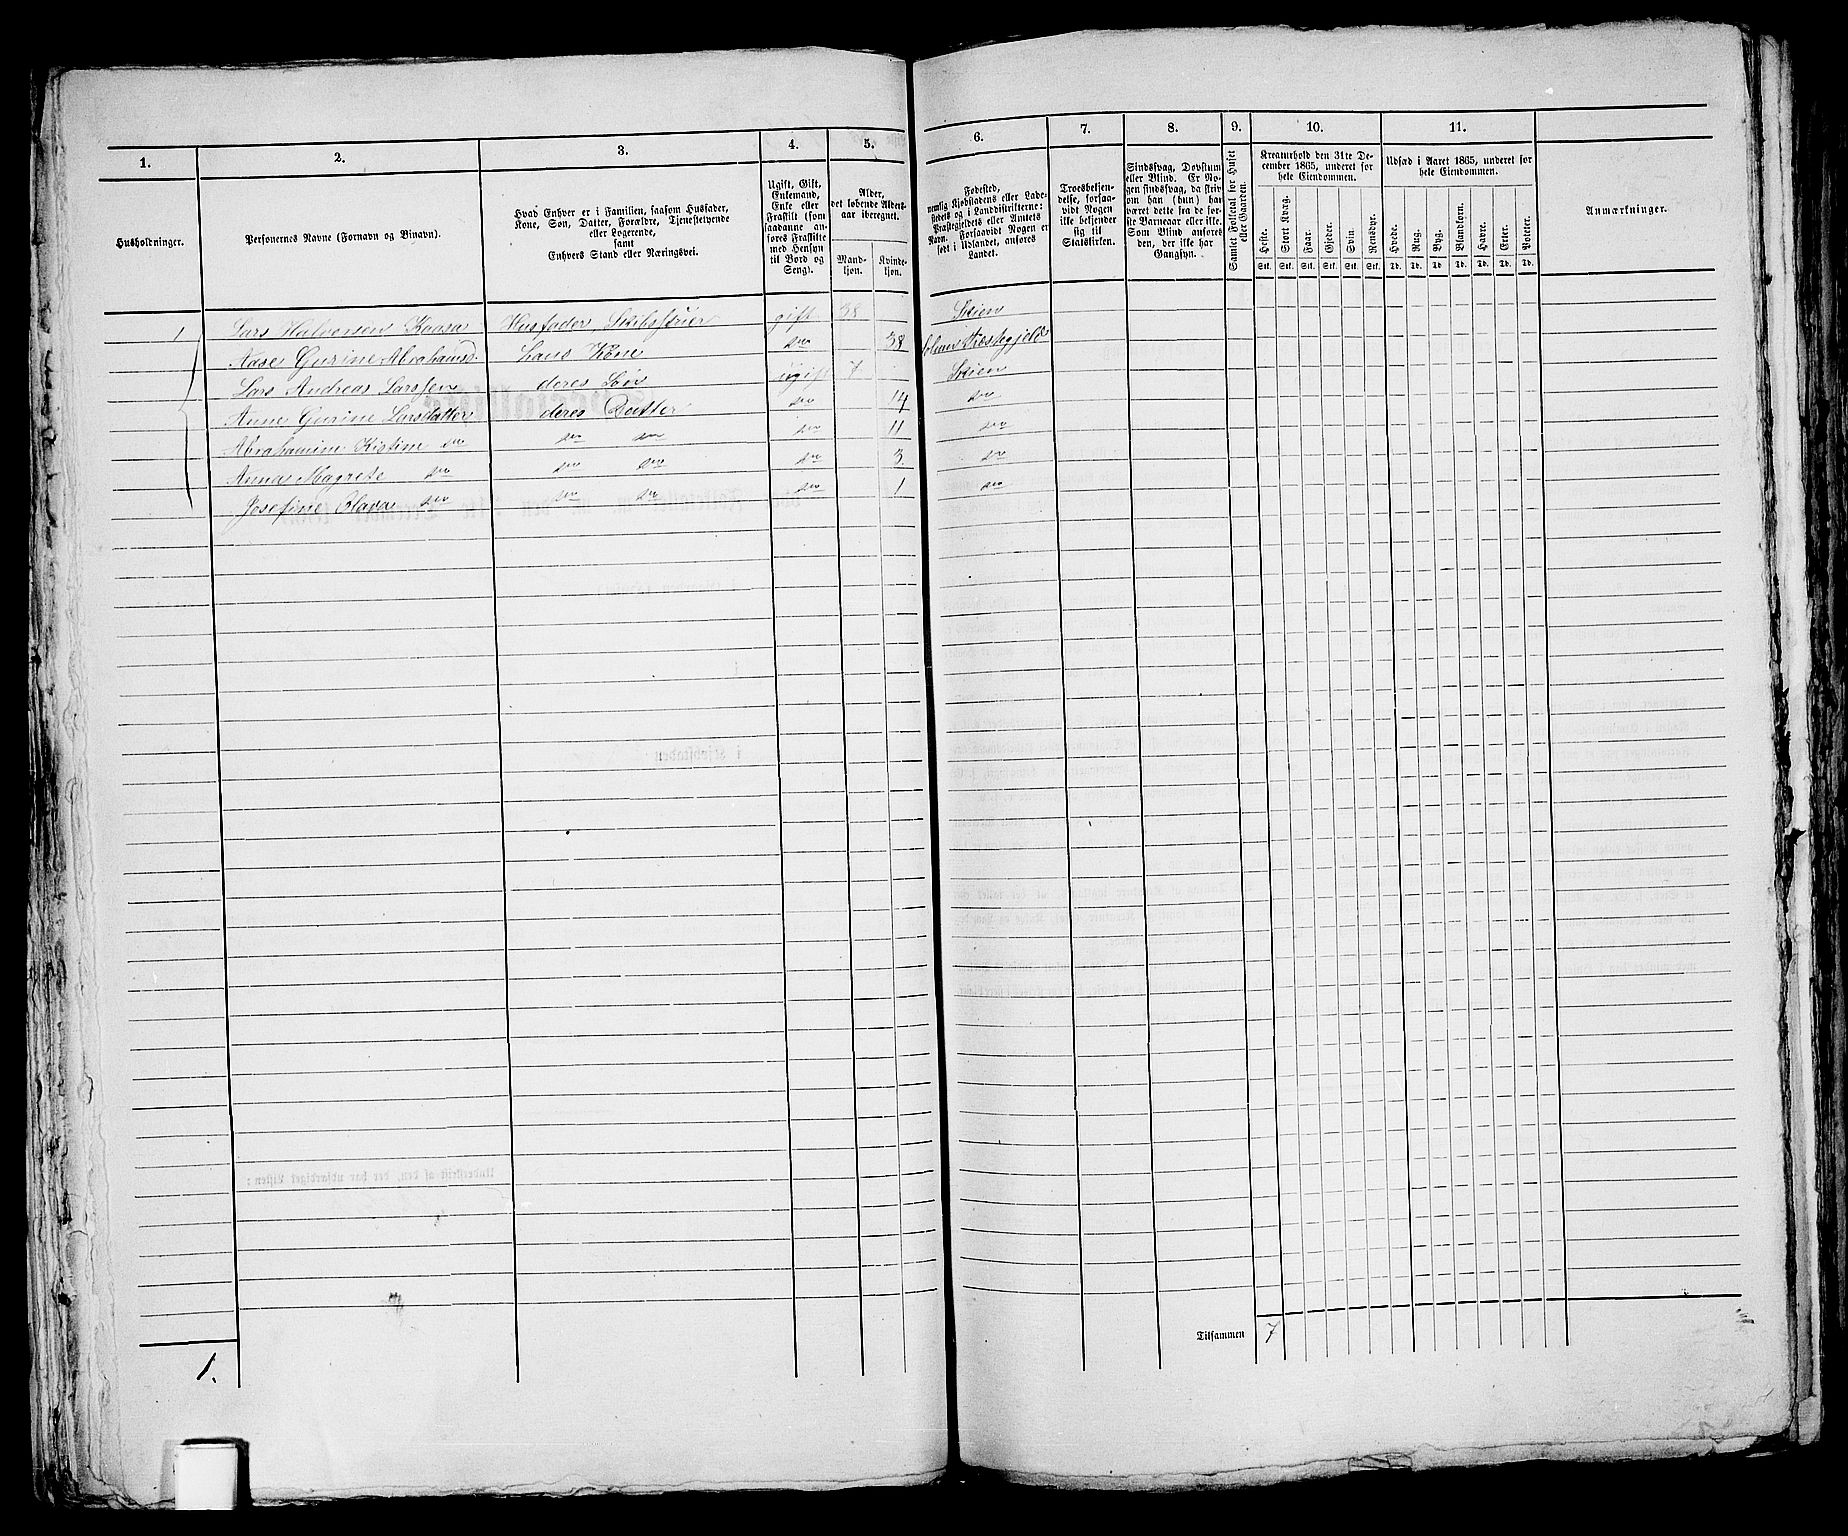 1. 2. 3. 4. 5. 6. 7. 8. 9. 10. 11.
Husholdninger.
Personernes Navne (Fornavn og Binavn).
Hvad Enhver er i Familien, saasom Husfader,
Kone, Søn, Datter, Forældre, Tjenestetyende
eller Logerende,
samt
Enhvers Stand eller Næringsvei.
Ugift, Gift,
Enkemand,
Enke eller
Fraskilt (som
saadanne an-
føres Fraskilte
med Hensyn
til Bord og
Seng).
Alder,
det løbende Alders-
aar iberegnet.
Mand-
kjøn.
Kvinde-
kjøn.
Fødested,
nemlig Kjøbstadens eller Lade-
stedets og i Landdistrikterne:
Præstegjeldets eller Amtets
Navn. Forsaavidt Nogen er
født i Udlandet, anføres
Landet.
Troesbekjen-
delse, forsaa-
vidt Nogen
ikke bekjender
sig til
Statskirken.
Sindssvag, Døvstum
eller Blind. Er No-
gen sindssvag, da skriv
om han (hun) har
været dette fra de før-
ste Barneaar eller ikke.
Som Blind anføres
den, der ikke har
Gangsyn.
Samlet Folketal for Huset
eller Gaarden.
Kreaturhold den 31te De-
cember 1865, underet for
hele Eiendommen.
Heste. Stort Kvæg. Faar. Gjeder. Svin. Rensdyr.
Stk. Stk. Stk. Stk. Stk. Stk.
Udsæd i Aaret 1865, underet for
hele Eiendommen.
Hvede. Rug. Byg. Blandkorn. Havre. Erter. Poteter.
Td. Td. Td. Td. Td. Td. Td.
Anmærkninger.
1 Lars Halvorsen Kaasa Husfader, gift 38 Skien
Aase Gurine Abrahamsd. hans Kone do 38 Præstegjeld
Lars Andreas Larssen deres Søn ugift 7 Skien
Anne Gurine Larsdatter deres Datter do 14 do
Abrahamine Kistine do do do do 11 do
Anna Magrete do do do do 3 do
Josefine do do do do 1 do
Tilsammen 7
1.